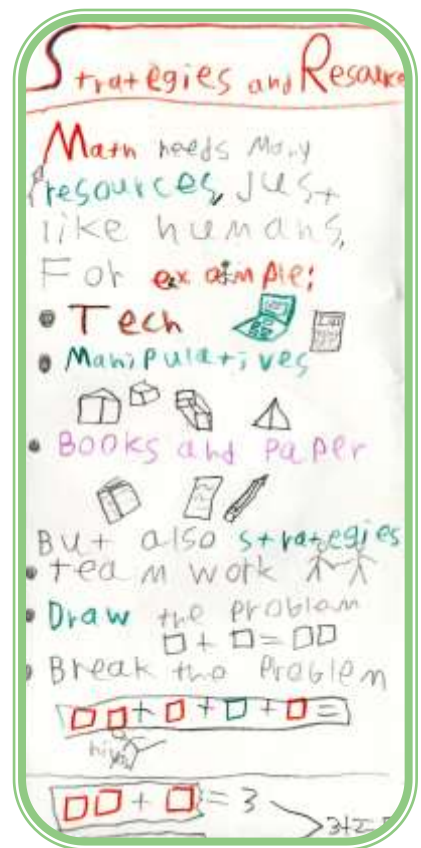 Strategies and Resource
Math needs many
resources, Just
like humans,
For example:
Tech
Manipulatives
Books and paper
But also strategies
team work
Draw the problem
□ + □ = □□
Break the problem
□□ + □ + □ + □ =
□□ + □ = 3
3+2=